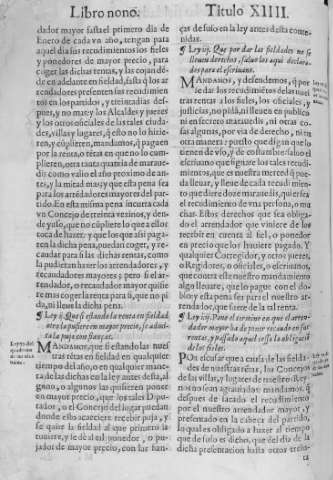 Libro nono.
Titulo XIIII.
dador mayor fasta el primero dia de
Enero de cada vn año, tengan para
aquel dia sus recudimientos los fieles
y ponedores de mayor precio, para
coger las dichas rentas, y las cojan dē-
de en adelante en fieldad, fasta q̄ los ar-
rendadores presenten sus recudimien
tos en los partidos, y treinta dias des-
pues, y no mas: y los Alcaldes y juezes
y los otros oficiales de las tales ciuda-
des, villas y lugares, q̄ esto no lo hizie-
ren, y cūplieren, mandamos, q̄ paguen
por la renta, o rētas en que no lo cum-
plieren, otra tanta quantia de maraue-
dis como valio el año proximo de an-
tes, y la mitad mas: y que esta pena sea
para los arrendadores mayores del par-
tido. En esta misma pena incurra cada
vn Concejo de treinta vezinos, y den-
de yuso, que no cūpliere lo que a ellos
toca de hazer: y que los que assi paga-
ren la dicha pena, puedan coger, y re-
caudar para si las dichas rentas, como
la pudieran hazer los arrendadores, y
recaudadores mayores: pero si el ar-
rendador, o recaudador mayor quisie-
re mas coger la renta para si, que no pi-
da, ni lleue la dicha pena.
¶ Ley ij. Que si estando la renta en fieldad
otro la pusiere en mayor precio, se admi-
ta la puja con fianças.
MANDAMOS, que si estando las nues
tras rētas en fieldad en qualquier
tiempo del año, o en qualquier mane-
ra de las dichas en la ley antes desta, al
guno, o algunos las quisieren poner
en mayor precio, que los tales Dipu-
tados, o el Concejo del lugar puedan
donde esto acaeciere recebir puja, y
se quite la fieldad al que primero la
tuuiere, y se dè al tal ponedor, o pu-
jador de mayor precio, con las fian-
ças de suso en la ley antes desta conte-
nidas.
¶ Ley iij. Que por dar las fieldades no se
lleuen derechos, saluo los aqui declara-
dos para el escriuano.
MANDAMOS, y defendemos, q̄ por
se dar los recudimiētos de las nues
tras rentas a los fieles, los oficiales, y
justicias, no pidā, ni lleuen en publico
ni en secreto marauedis, ni otras co-
sas algunas, por via de derecho, ni en
otra manera: puesto que digan que lo
tienen de vso, y de costumbre: saluo el
escriuano que signare los tales recudi-
mientos, que es nuestra merced q̄ pue-
da lleuar, y lleue de cada recudimien-
to que diere doze marauedis, quier sea
el recudimiento de vna persona, o mu-
chas. Estos derechos que sea obliga-
do el arrendador que viniere de los
recebir en cuenta al fiel, o ponedor
en precio que los huuiere pagado. Y
qualquier Corregidor, y otros juezes,
o Regidores, o oficiales, o escriuanos,
que contra este nuestro mandamiento
algo lleuare, que lo pague con el do-
blo, y esta pena sea para el nuestro ar-
rendador, que fuere de la tal renta.
¶ Ley iiij. Pone el termino en que el arren-
dador mayor ha de poner recaudo en sus
rentas, y passado aquel cessa la obligaciō
de los fieles.
POr escusar que a causa de las fielda-
des de nuestras rētas, los Concejos
de las villas, y lugares de nuestro Rey-
no no sean agrauiados: mandamos, q̄
despues de sacado el recudimiento
por el nuestro arrendador mayor, y
presentado en la cabeça del partido,
la qual es obligado a hazer al tiempo
que de suso es dicho, que del dia de la
dicha presentacion hasta otros trein-
ta